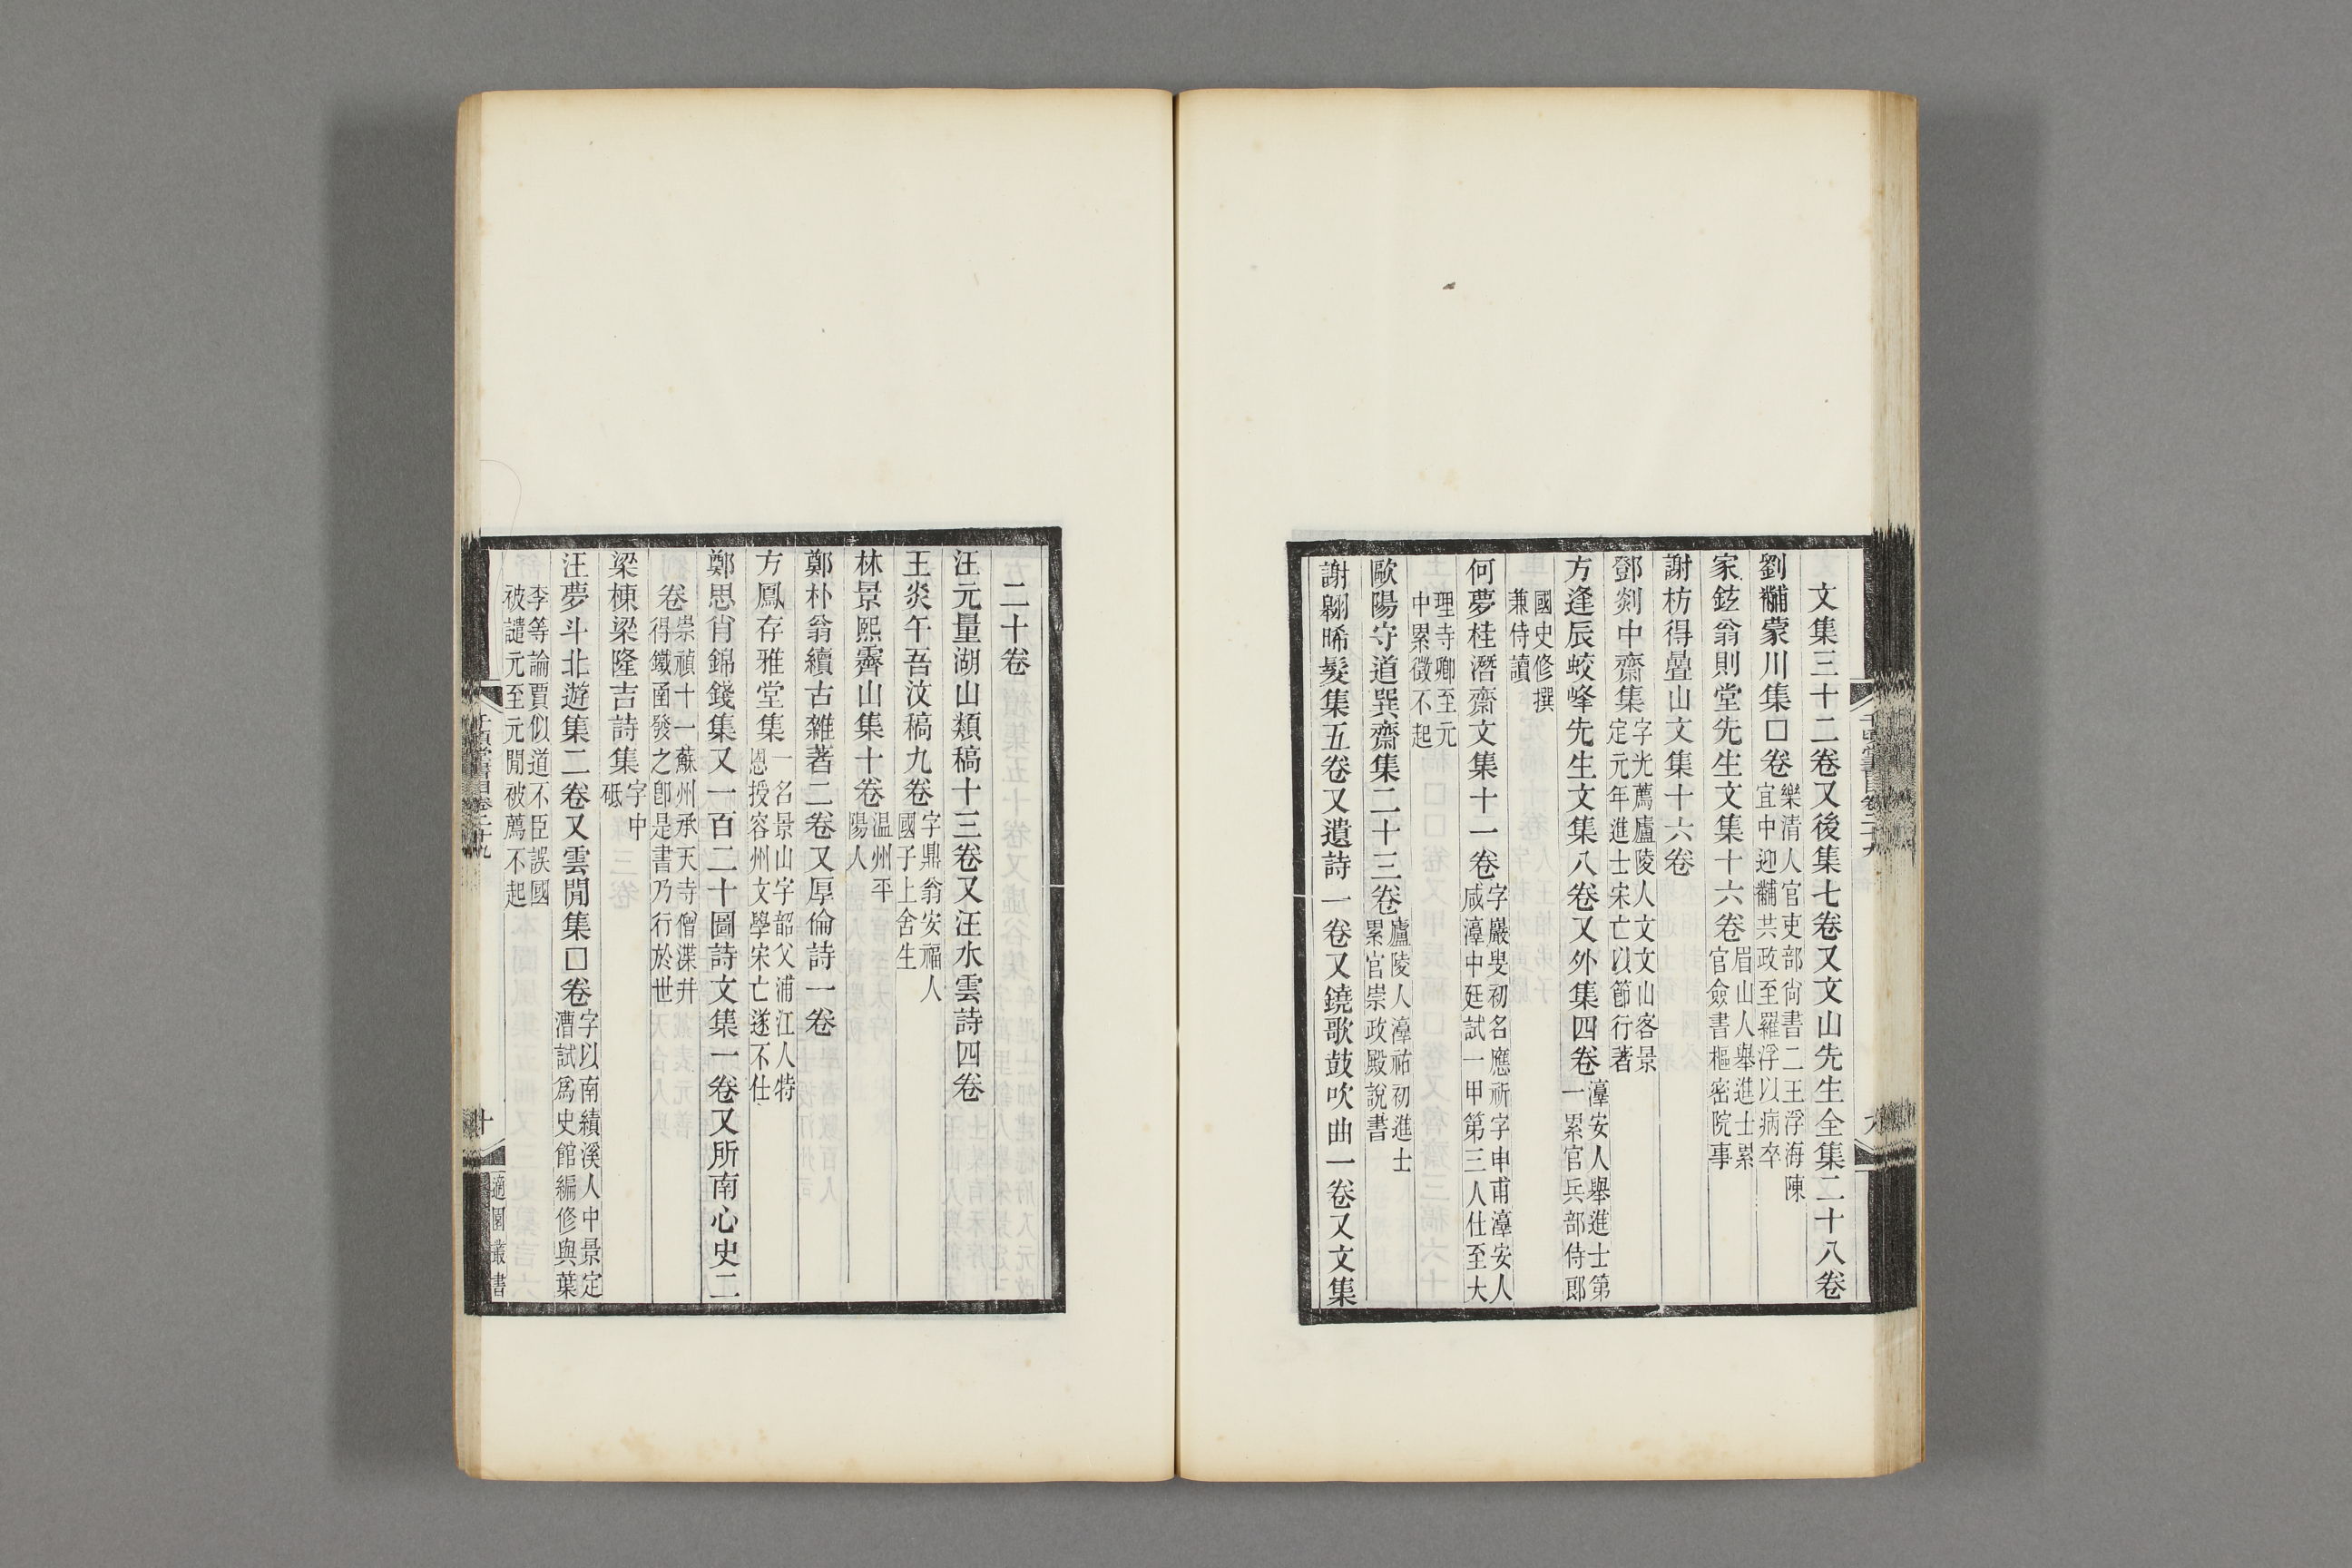 文集三十二卷又後集七卷又文山先生全集二十八卷
劉黼蒙川集□卷樂清人官吏部尙書二王浮海陳
宜中迎黼共政至羅浮以病卒
家鉉翁則堂先生文集十六卷眉山人舉進士累
官僉書樞密院事
謝枋得疊山文集十六卷
鄧剡中齋集字光薦廬陵人文文山客景
定元年進士宋亡以節行著
方逢辰蛟峰先生文集八卷又外集四卷湻安人舉進士第
一累官兵部侍郎
國史修撰
兼侍讀
何夢桂潛齋文集十一卷字巖叟初名應祈字申甫湻安人
咸湻中廷試一甲第三人仕至大
理寺卿至元
中累徵不起
歐陽守道巽齋集二十三卷廬陵人湻祐初進士
累官崇政殿說書
謝翺晞髮集五卷又遺詩一卷又鐃歌鼓吹曲一卷又文集
二十卷
汪元量湖山類稿十三卷又汪水雲詩四卷
王炎午吾汶稿九卷字鼎翁安福人
國子上舍生
林景熙霽山集十卷温州平
陽人
鄭朴翁續古雜著二卷又厚倫詩一卷
方鳳存雅堂集一名景山字韶父浦江人特
恩授容州文學宋亡遂不仕
鄭思肖錦錢集又一百二十圖詩文集一卷又所南心史二
卷崇禎十一蘇州承天寺僧渫井
得鐵函發之卽是書乃行於世
梁棟梁隆吉詩集字中
砥
汪夢斗北遊集二卷又雲閒集□卷字以南績溪人中景定
漕試爲史館編修與葉
李等論賈似道不臣誤國
被譴元至元閒被薦不起
千頃堂書目卷二十九
十
適園叢書